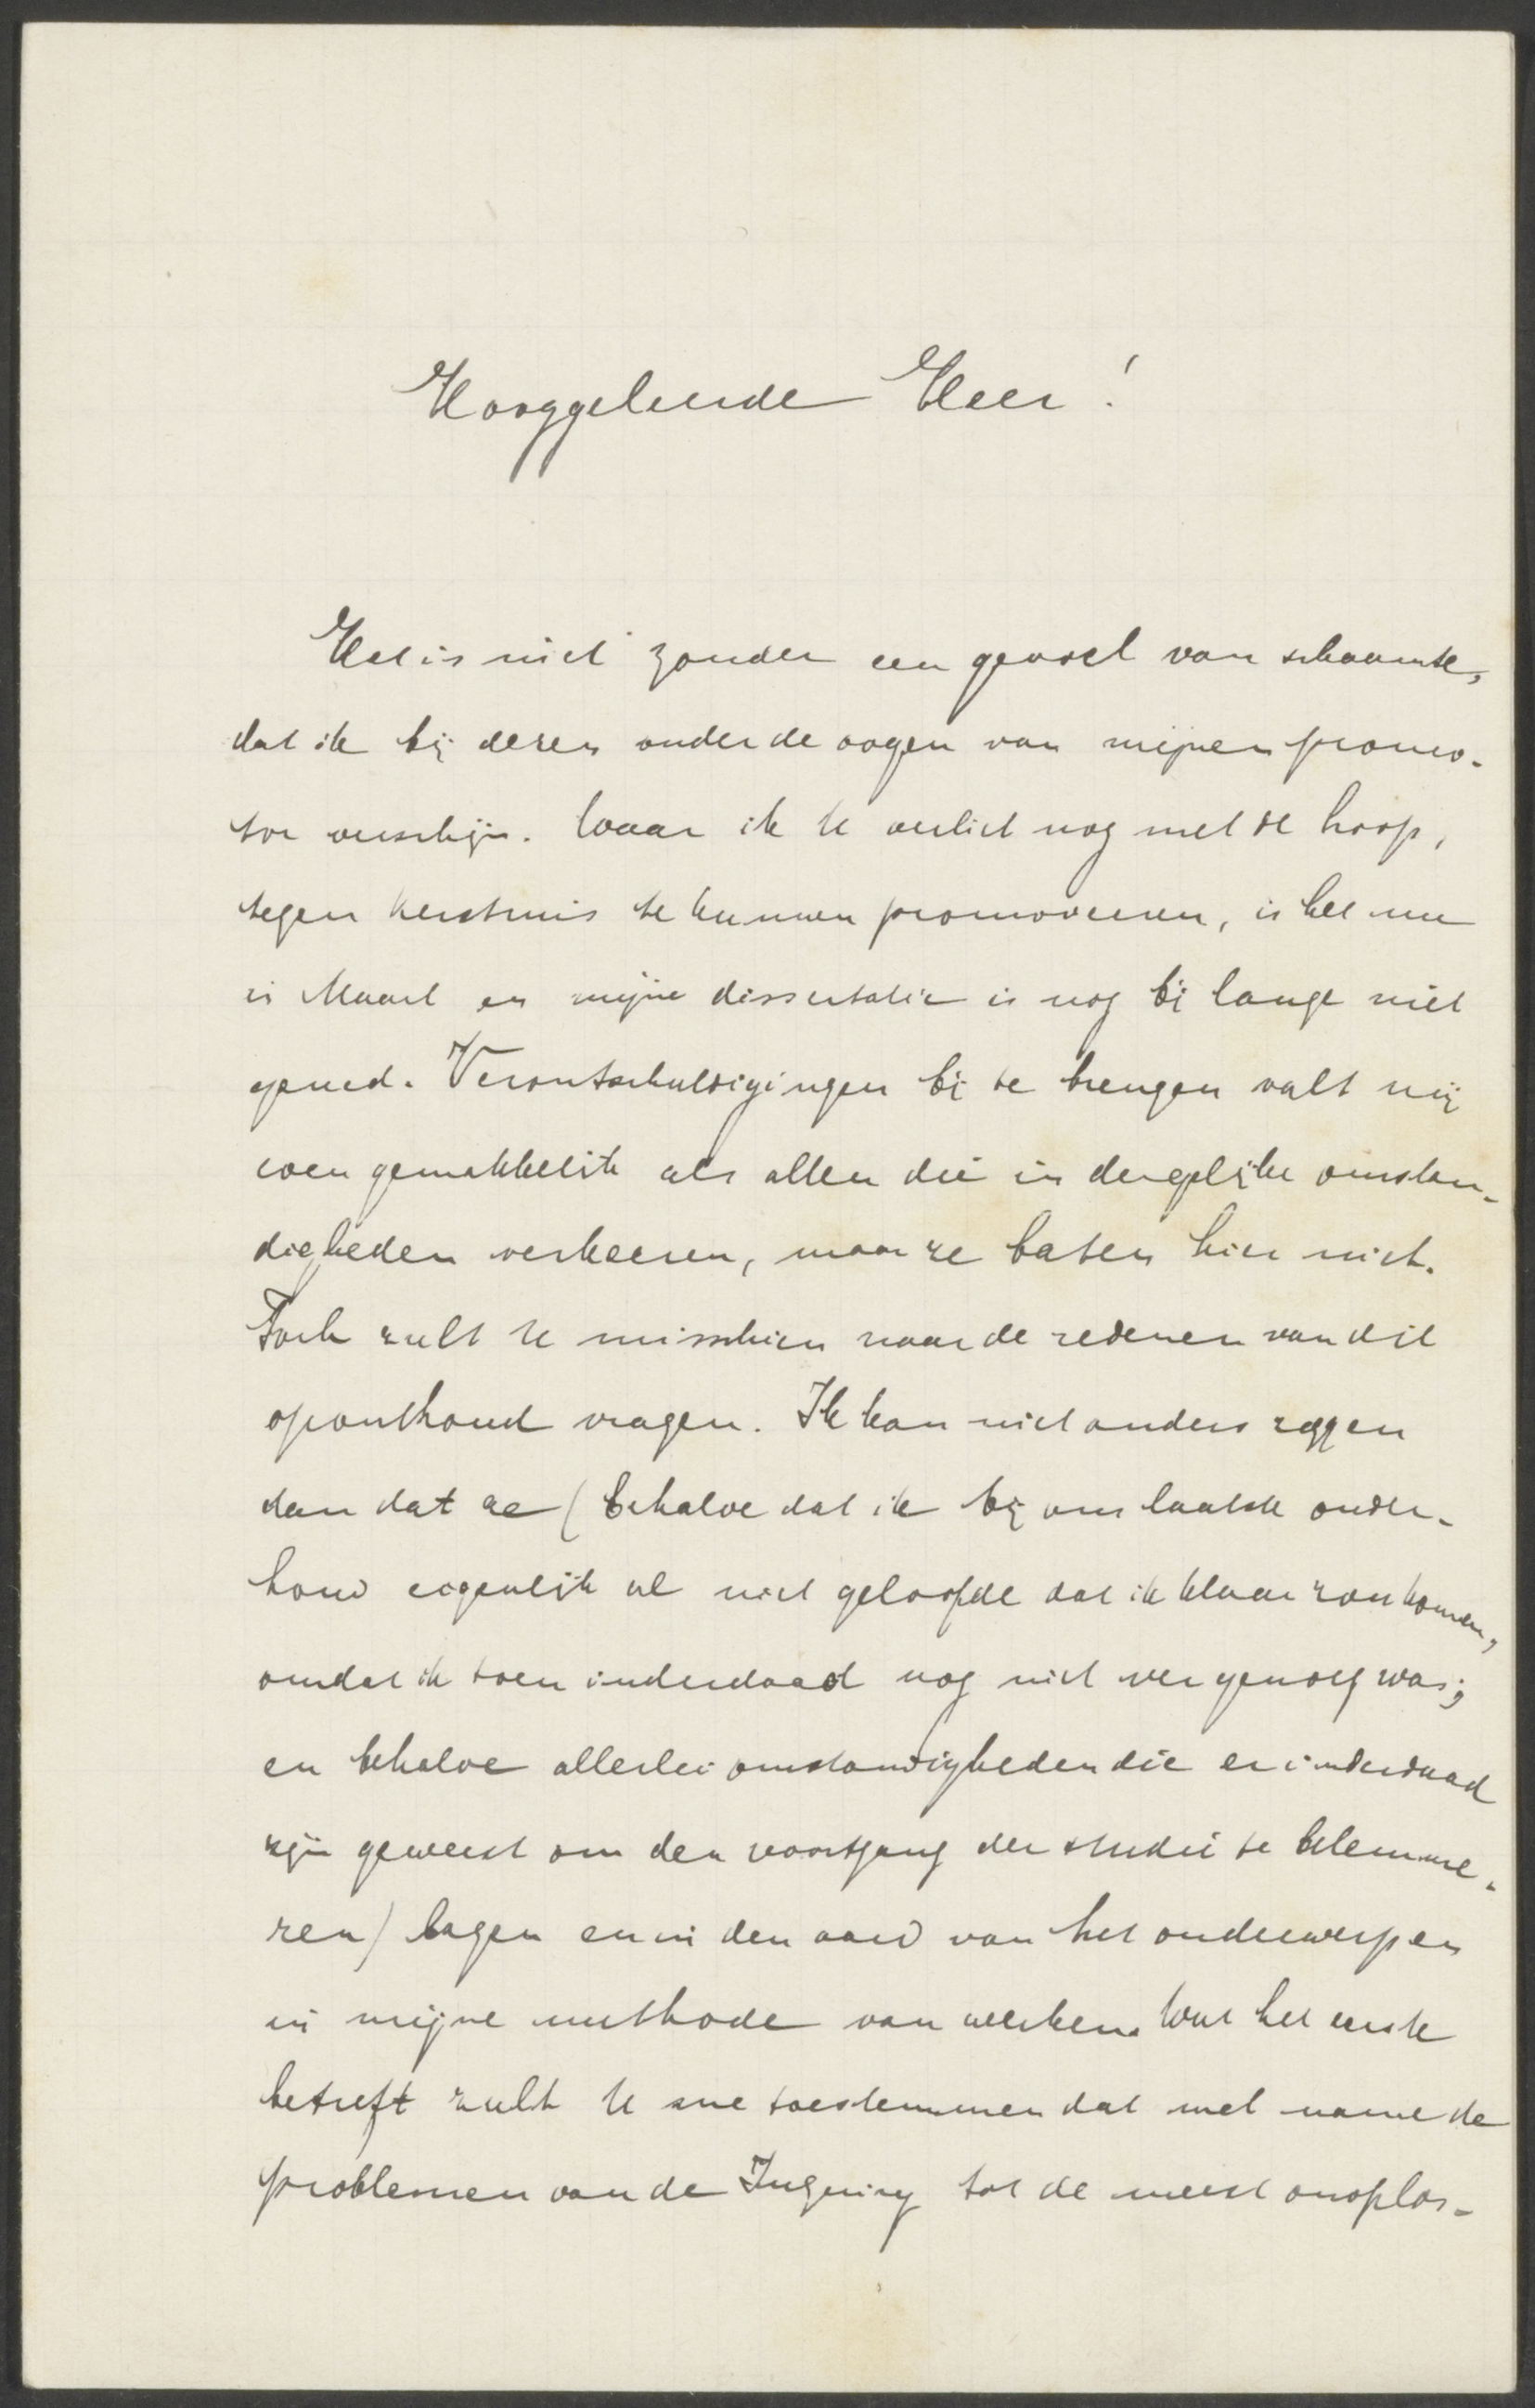 Hooggeleerde Heer!
Het is niet zonder een gevoel van schaamte,
dat ik bij dezen onder de oogen van mijnen promo-
tor verschijn. Waar ik U verliet nog met de hoop,
tegen Kerstmis te kunnen promoveeren, is het nu
in Maart en mijne dissertatie is nog bij lange niet
gereed. Verontschuldigingen bij te brengen valt mij
even gemakkelijk als allen die in dergelijke omstan-
digheden verkeeren, maar ze baten hier niet.
Toch zult U misschien naar de redenen van dit
oponthoud vragen. Ik kan niet anders zeggen
dan dat ze (behalve dat ik bij ons laatste onder-
houd eigenlijk al niet geloofde dat ik klaar zou komen,
omdat ik toen inderdaad nog niet ver genoeg was;
en behalve allerlei omstandigheden die er inderdaad
zijn geweest om den voortgang der studie te belemme-
ren) lagen en in den aard van het onderwerp en
in mijne methode van werken. Wat het eerste
betreft zult U me toestemmen dat met name de
problemen van de Inquiry tot de meest onoplos-